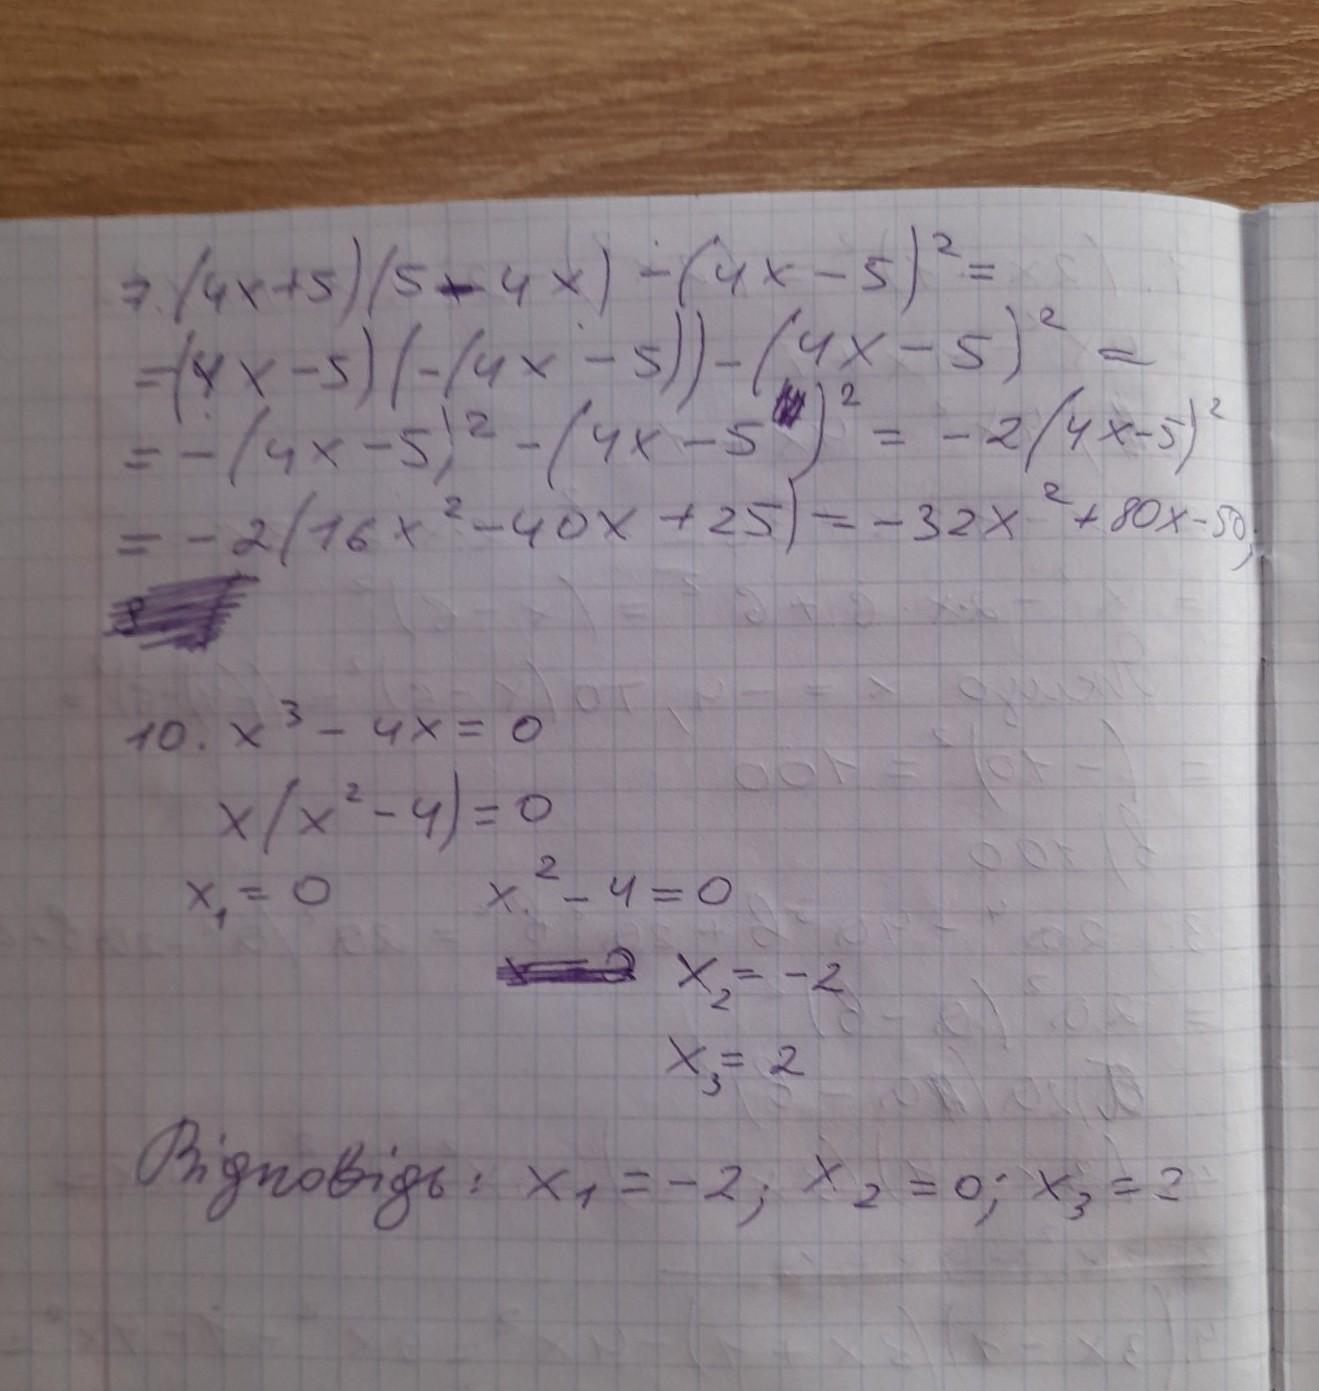 7. (4x+5)(5-4x) - (4x-5)² =
= (4x-5)(-(4x-5)) - (4x-5)² =
= -(4x-5)² - (4x-5)² = -2(4x-5)²
= -2(16x² - 40x + 25) = -32x² + 80x - 50;
10. x³ - 4x = 0
x(x² - 4) = 0
x₁ = 0 x² - 4 = 0
x₂ = -2
x₃ = 2
Відповідь: x₁ = -2; x₂ = 0; x₃ = 2